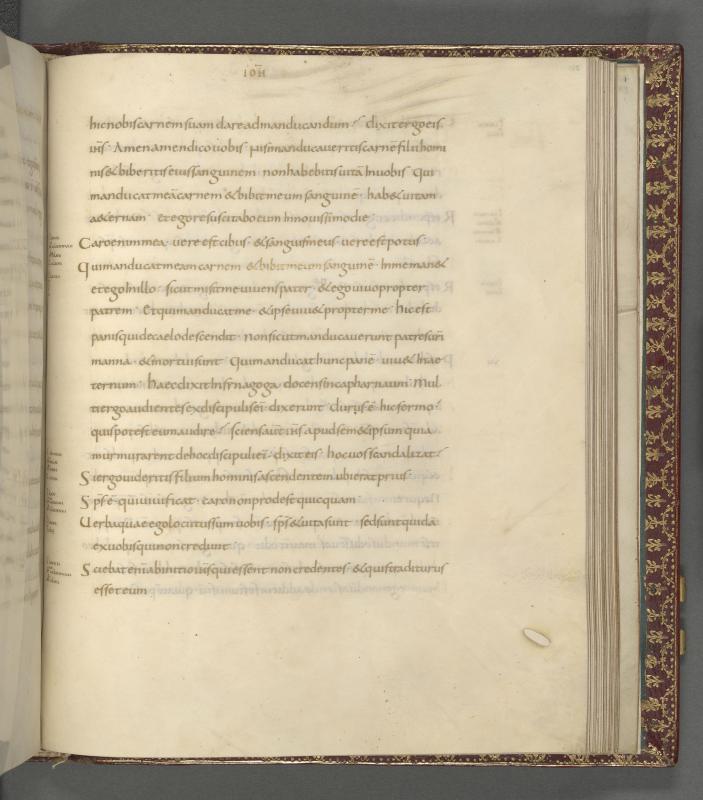 IOH̄
hic nobis carnem suam dare ad manducandum · dixit ergo eis
ih̄s · Amen amen dico uobis · nisi manducaueritis carnē filii homi
nis & biberitis eius sanguinem · non habebitis uitā In uobis · Qui
manducat meā carnem & bibit meum sanguinē · hab& uitam
a&ernam · et ego resuscitabo eum In nouissimo die
Caro enim mea · uere est cibus · & sanguis meus · uere est potus
Qui manducat meam carnem & bibit meum sanguinē · In me man&
et ego In illo · sicut misit me uiuens pater · & ego uiuo propter
patrem · Et qui manducat me · & ipse uiu& propter me · hic est
panis qui de caelo descendit · non sicut manducauerunt patres uri
manna · & mortui sunt · Qui manducat hunc panē · uiu& In ae
ternum · haec dixit In synagoga · docens in capharnaum · Mul
ti ergo audientes ex discipulis ei dixerunt · durus ē hic sermo ·
quis potest eum audire · sciens aut ih̄s apud sem&ipsum quia
murmurarent de hoc discipuli ei · dixit eis · hoc uos scandalizat ·
Si ergo uideritis filium hominis ascendentem ubi erat prius ·
Sp̄s ē · qui uiuificat · caro non prodest quicquam
Uerba quae ego locutus sum uobis · sp̄s & uita sunt · sed sunt quidā
ex uobis qui non credunt ·
Sciebat enī ab initio ih̄s qui essent non credentes · & quis traditurus
esset eum